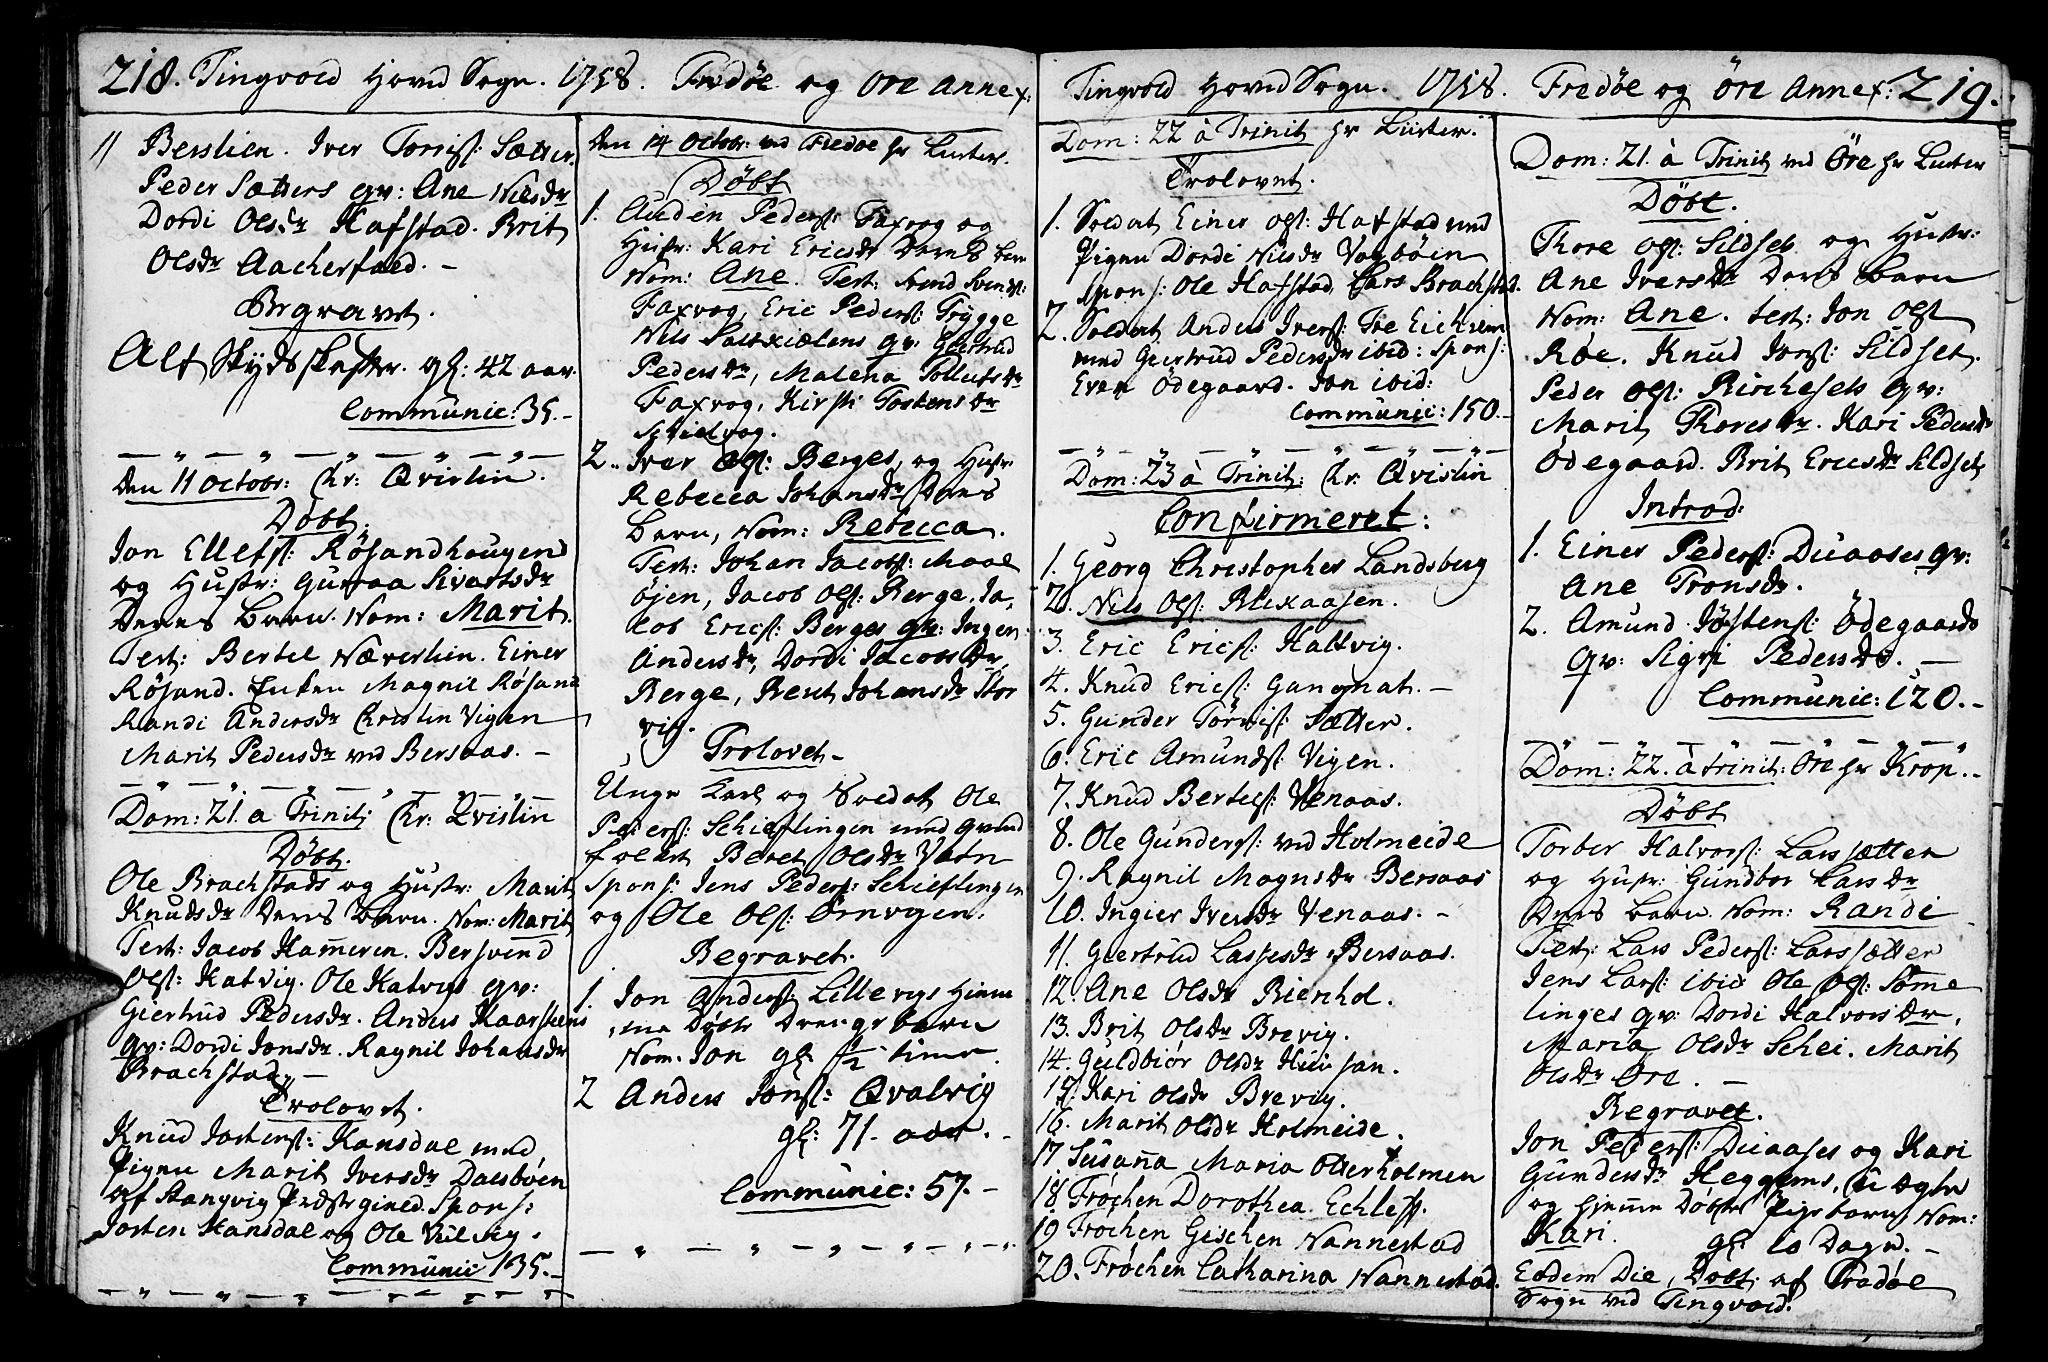 218. Tingvold Hovid Sogn. 1758. Fredøe og Øre Annex:
11 Berslien. Iver Torrisf: Sætter.
Peder Sætters qv: Ane Nilsdr
Dordi Olsdr Hafstad. Brit
Olsdr Aacherfald. –
Begravet.
Alf Skydskaffer. gl: 42 aar.
Communic: 35. –
Den 11 Octobr: Chr: Qvislin.
Døbt.
Jon Ellefsf: Røsandhaugen
og Hustr: Guroa Sivartsdr
Deres barn. Nom: Marit.
Test: Bertel Næverlien. Einer
Røsand. Enken Magnil Røsand
Randi Andersdr Christin Vigen
Marit Pedersdr ved Bersaas. –
Dom: 21. a Trinit: Chr: Qvislin
Døbt.
Ole Brachstads og Hustr: Marit
Knudsdr Deres barn. Nom: Marit
Test: Jacob Hammeren. Bersvend
Olsf: Hatvig. Ole Hatvigs qv:
Giertrud Pedersdr. Anders Kaarsteens
qv: Dordi Jonsdr. Ragnil Johansdr
Brachstad. –
Trolovet.
Knud Jostensf: Hansdal med
Pigen Marit Iversdr Dalsbøen
af Stangvig Præstegield. Spons:
Josten Hansdal og Ole
Communic 135. –
Den 14 Octobr: ved Fredøe hr Luster.
Døbt
1. Auden Pedersf: Faxvog og
Hustr: Kari Ericsdr Deres barn
Nom: Ane. Test: Svend Svendsf:
Faxvog, Eric Pedersf: Trygge
Nils Saltkielens qv. Giertrud
Pedersdr, Malena Tollufsdr
Faxvog, Kirsti Tostensdr
Schielvog.
2. Iver Olsf: Berges, og Hustr
Rebecca Johansdr Deres
barn, Nom: Rebecca.
Test: Johan Jacobsf: Maal
øjen, Jacob Olsf: Berge. Ja,
cob Ericsf: Berges qv: Inger
Andersdr, Dordi Jacobsdr
Berge, Beret Johansdr Stor
vig.
Trolovet –
Unge Karl og Soldat Ole
Pedersf: Schieflingen med qvind
folket Beret Olsdr Vatn
Spons: Jens Pedersf: Schieflingen
og Ole Olsf: Ørnvgen.
Begravet.
1. Jon Andersf: Lillevigs Hiem
me Døbte Drenge barn
Nom. Jon gl: 1/2 time.
2 Anders Jonsf: Qvalvig
gl: 71. aar. –
Communic: 57. –
Tingvold Hovid Sogn. 1758. Fredøe og Øre Annex: 219.
Dom: 22 à Trinit hr Luster.
Trolovet.
1. Soldat Einer Olsf: Hafstad med
Pigen Dordi Nilsdr Vagbøin
Spons: Ole Hafstad Lars Brachstad.
2. Soldat Anders Iversf: Tre Eichrem
med Giertrud Pedersdr ibid: Spons:
Even Ødegaard. Jon ibid:
Communic: 150. –
Dom: 23 à Trinit: Chr: Qvislin
Confirmeret:
1. Georg Christopher Landsberg
2. Nils Olsf: Blixaasen.
3. Eric Ericsf: Haltvig.
4. Knud Ericsf: Gangnat. –
5. Gunder Tørrisf: Sætter.
6. Eric Amundsf: Vigen.
7. Knud Bertelsf: Venaas.
8. Ole Gundersf: ved Holmeide
9. Ragnil Magnsdr Bersaas
10. Ingier Iversdr Venaas. –
11. Giertrud Lassesdr Bersaas.
12. Ane Olsdr Bierkhol.
13. Brit Olsdr Brevig.
14. Guldbiør Olsdr
15. Kari Olsdr Brevig.
16. Marit Olsdr Holmeide.
17 Susanna Maria Otterholmen
18. Frøchen Dorothea Echleff.
19 Frøchen Gischen Nannestad
20. Frøchen Catharina Nannestad.
Dom: 21. à Trinit ved Øre hr Luster
Døbt.
Thore Olsf: Sildsets og Hustr:
Ane Iversdr Deres barn
Nom: Ane. Test: Jon Olsf
Røe. Knud Jonsf: Sildset.
Peder Olsf: Birchesets qv:
Marit Thoresdr. Kari Pedersdr
Ødegaard. Brit Ericsdr Sildset
Introd:
1. Einer Pedersf: Duaases qv:
Ane Tronsdr.
2. Amund Jøstensf: Ødegaards
qv: Sigri Pedersdr. –
Communic: 120. –
Dom: 22. à trinit: Øre hr Krop. –
Døbt
Torber Halvorsf: Larssætter
og Hustr: Gundbor Larsdr
Deres barn. Nom: Randi
Test: Lars Pedersf: Larssætter
Jens Larsf: ibid Ole Olsf: Søme
linges qv: Dordi Halvorsdr,
Maria Olsdr Schei. Marit
Olsdr Øre. –
Begravet.
Jon Pedersf: Duaases og Kari
Gundersdr Heggems, u ægte
og hjemme Døbte Pige barn Nom:
Kari. gl: 10 Dage. –
Eodem Die, Døbt af Fredøe
Sogn ved Tingvold: